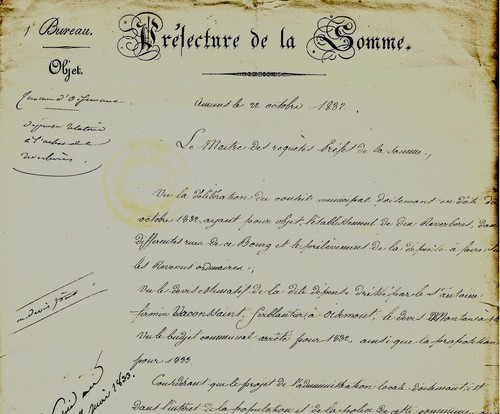 1er Bureau.
Préfecture de la Somme.
Objet.
Commune d'Oisemont
dépense relative
à l'achat de
réverbères
Amiens le 22 octobre 1832.
Le Maitre des requêtes Préfet de la Somme,
Vu la délibération du conseil municipal d'oisemont en date du
octobre 1832, ayant pour objet l'établissement de dix Reverbères, dans
differentes rues de ce Bourg et le prélèvement de la dépense à faire
les Revenus ordinaires;
Vu le devis estimatif de la dite dépense dressé par le Sr antoine
firmin Vacossaint, ferblantier à oisemont, le devis Montant à
Vu le budget communal arrêté pour 1832, ainsi que les propositions
pour 1833.
mai 1833.
Considérant que le projet de l'administration locale d'oisemont, est
dans l'intérêt de la population et de la police de cette commune